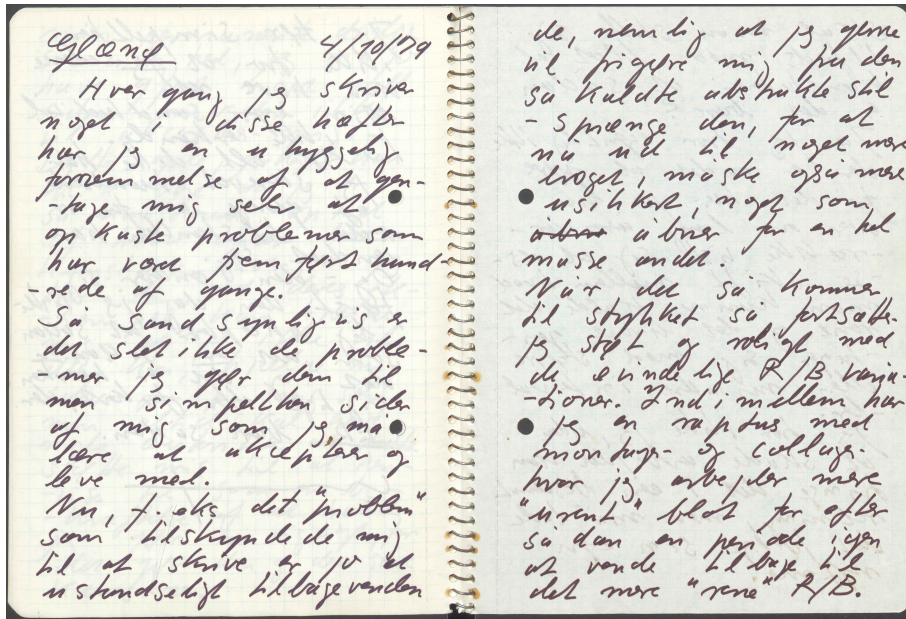 Glænø 4/10/79
Hver gang jeg skriver
noget i disse hæfter
har jeg en uhyggelig
fornemmelse af at gen-
-tage mig selv at
opkaste problemer som
har været fremført hund
-rede af gange.
Så sandsynligvis er
det slet ikke de proble-
-mer jeg gør dem til
men simpelthen sider
af mig som jeg må
lære at akceptere og
leve med.
Nu, f.eks det "problem"
som tilskyndede mig
til at skrive er jo et
ustandseligt tilbagevenden
de, nemlig at jeg gerne
vil frigøre mig fra den
så kaldte abstrakte stil
- sprænge den, for at
nå ud til noget mere
broget, måske også mere
usikkert, noget som
åbner for en hel
masse andet.
Når det så kommer
til stykket så fortsætter
jeg støt og roligt med
de evindelige R/B varja-
-tioner. Ind i mellem har
jeg en raptus med
montage- og collage-
hvor jeg arbejder mere
"urent" blot for efter
sådan en periode igen
at vende tilbage til
det mere "rene" R/B.